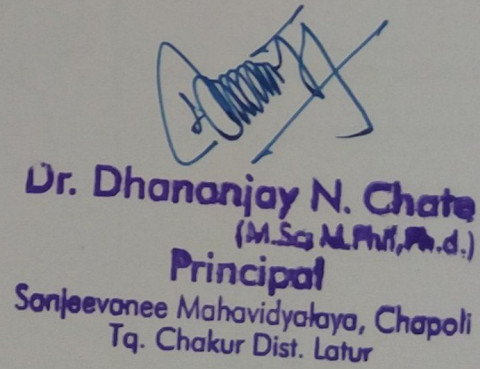 Dr. Dhananjay N. Chate
(M.Sc, M.Phil, Ph.d.)
Principal
Sanjeevanee Mahavidyalaya, Chapoli
Tq. Chakur Dist. Latur